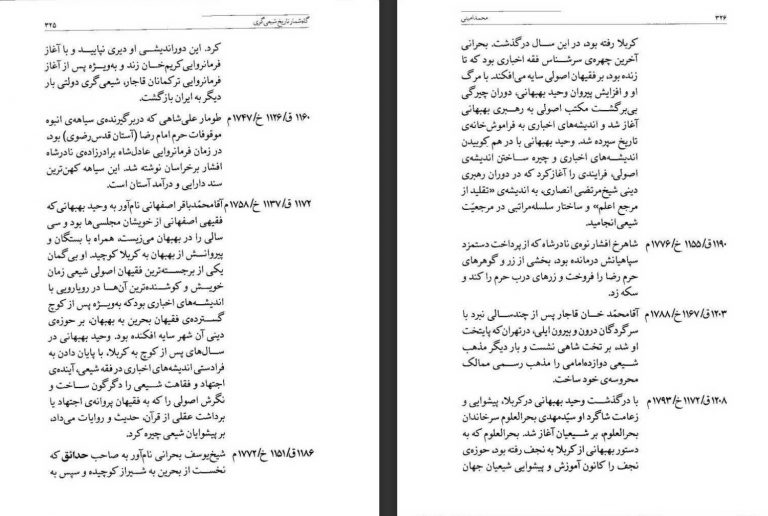 گاه‌شمار تاریخ شیعی‌گری
۳۲۵
کرد. این دوراندیشی او دیری نپایید و با آغاز
فرمانروایی کریم‌خان زند و به‌ویژه پس از آغاز
فرمانروایی ترکمانان قاجار، شیعی‌گری دولتی بار
دیگر به ایران بازگشت.
۱۱۶۰ ق/۱۱۲۶ خ/۱۷۴۷م طومار علی‌شاهی که دربرگیرنده‌ی سیاهه‌ی انبوه
موقوفات حرم امام رضا (آستان قدس‌رضوی) بود،
در زمان فرمانروایی عادل‌شاه برادرزاده‌ی نادرشاه
افشار بر‌خراسان نوشته شد. این سیاهه کهن‌ترین
سند دارایی و درآمد آستان است.
۱۱۷۲ ق/۱۱۳۷ خ/۱۷۵۸م آقامحمّدباقر اصفهانی نام‌آور به وحید بهبهانی‌که
فقیهی اصفهانی از خویشان مجلسی‌ها بود و سی
سالی را در بهبهان می‌زیست، همراه با بستگان و
پیروانش از بهبهان به کربلا کوچید. او بی‌گمان
یکی از برجسته‌ترین فقیهان اصولی شیعی زمان
خویش و کوشنده‌ترین آن‌ها در رویارویی با
اندیشه‌های اخباری بودکه به‌ویژه پس از کوچ
گسترده‌ی فقیهان بحرین به بهبهان، بر حوزه‌ی
دینی آن شهر سایه افکنده بود. وحید بهبهانی در
سال‌های پس از کوچ به کربلا، با پایان دادن به
فرادستی اندیشه‌های اخباری در فقه شیعی، آینده‌ی
اجتهاد و فقاهت شیعی را دگرگون ساخت و
نگرش اصولی را که به فقیهان پروانه‌ی اجتهاد یا
برداشت عقلی از قرآن، حدیث و روایات می‌داد،
بر پیشوایان شیعی چیره کرد.
۱۱۸۶ ق/۱۱۵۱ خ/۱۷۷۲م شیخ‌یوسف بحرانی نام‌آور به صاحب حدائق که
نخست از بحرین به شیراز کوچیده و سپس به
محمد امینی
۳۲۶
کربلا رفته بود، در این سال درگذشت. بحرانی
آخرین چهره‌ی سرشناس فقه اخباری بود که تا
زنده بود، بر فقیهان اصولی سایه می‌افکند. با مرگ
او و افزایش پیروان وحید بهبهانی، دوران چیرگی
بی‌برگشت مکتب اصولی به رهبری بهبهانی
آغاز شد و اندیشه‌های اخباری به فراموش‌خانه‌ی
تاریخ سپرده شد. وحید بهبهانی با در هم کوبیدن
اندیشه‌های اخباری و چیره ساختن اندیشه‌ی
اصولی، فرایندی را آغازکرد که در دوران رهبری
دینی شیخ‌مرتضی انصاری، به اندیشه‌ی «تقلید از
مرجع اعلم» و ساختار سلسله‌مراتبی در مرجعیّت
شیعی انجامید.
۱۱۹۰ ق/۱۱۵۵ خ/۱۷۷۶م شاهرخ افشار نوه‌ی نادرشاه که از پرداخت دستمزد
سپاهیانش درمانده بود، بخشی از زر و گوهرهای
حرم رضا را فروخت و زرهای درب حرم را کند و
سکه زد.
۱۲۰۳ ق/۱۱۶۷ خ/۱۷۸۸م آقامحمّد خان قاجار پس از چندسالی نبرد با
سرگردگان درون و بیرون ایلی، در‌تهران‌که پایتخت
او شد، بر تخت شاهی نشست و بار دیگر مذهب
شیعی دوازده‌امامی را مذهب رسمی ممالک
محروسه‌ی خود ساخت.
۱۲۰۸ ق/۱۱۷۲ خ/۱۷۹۳م با درگذشت وحید بهبهانی در‌کربلا، پیشوایی و
زعامت شاگرد او سیّدمهدی بحرالعلوم سرخاندان
بحرالعلوم، بر شیعیان آغاز شد. بحرالعلوم که به
دستور بهبهانی از کربلا به نجف رفته بود، حوزه‌ی
نجف را کانون آموزش و پیشوایی شیعیان جهان